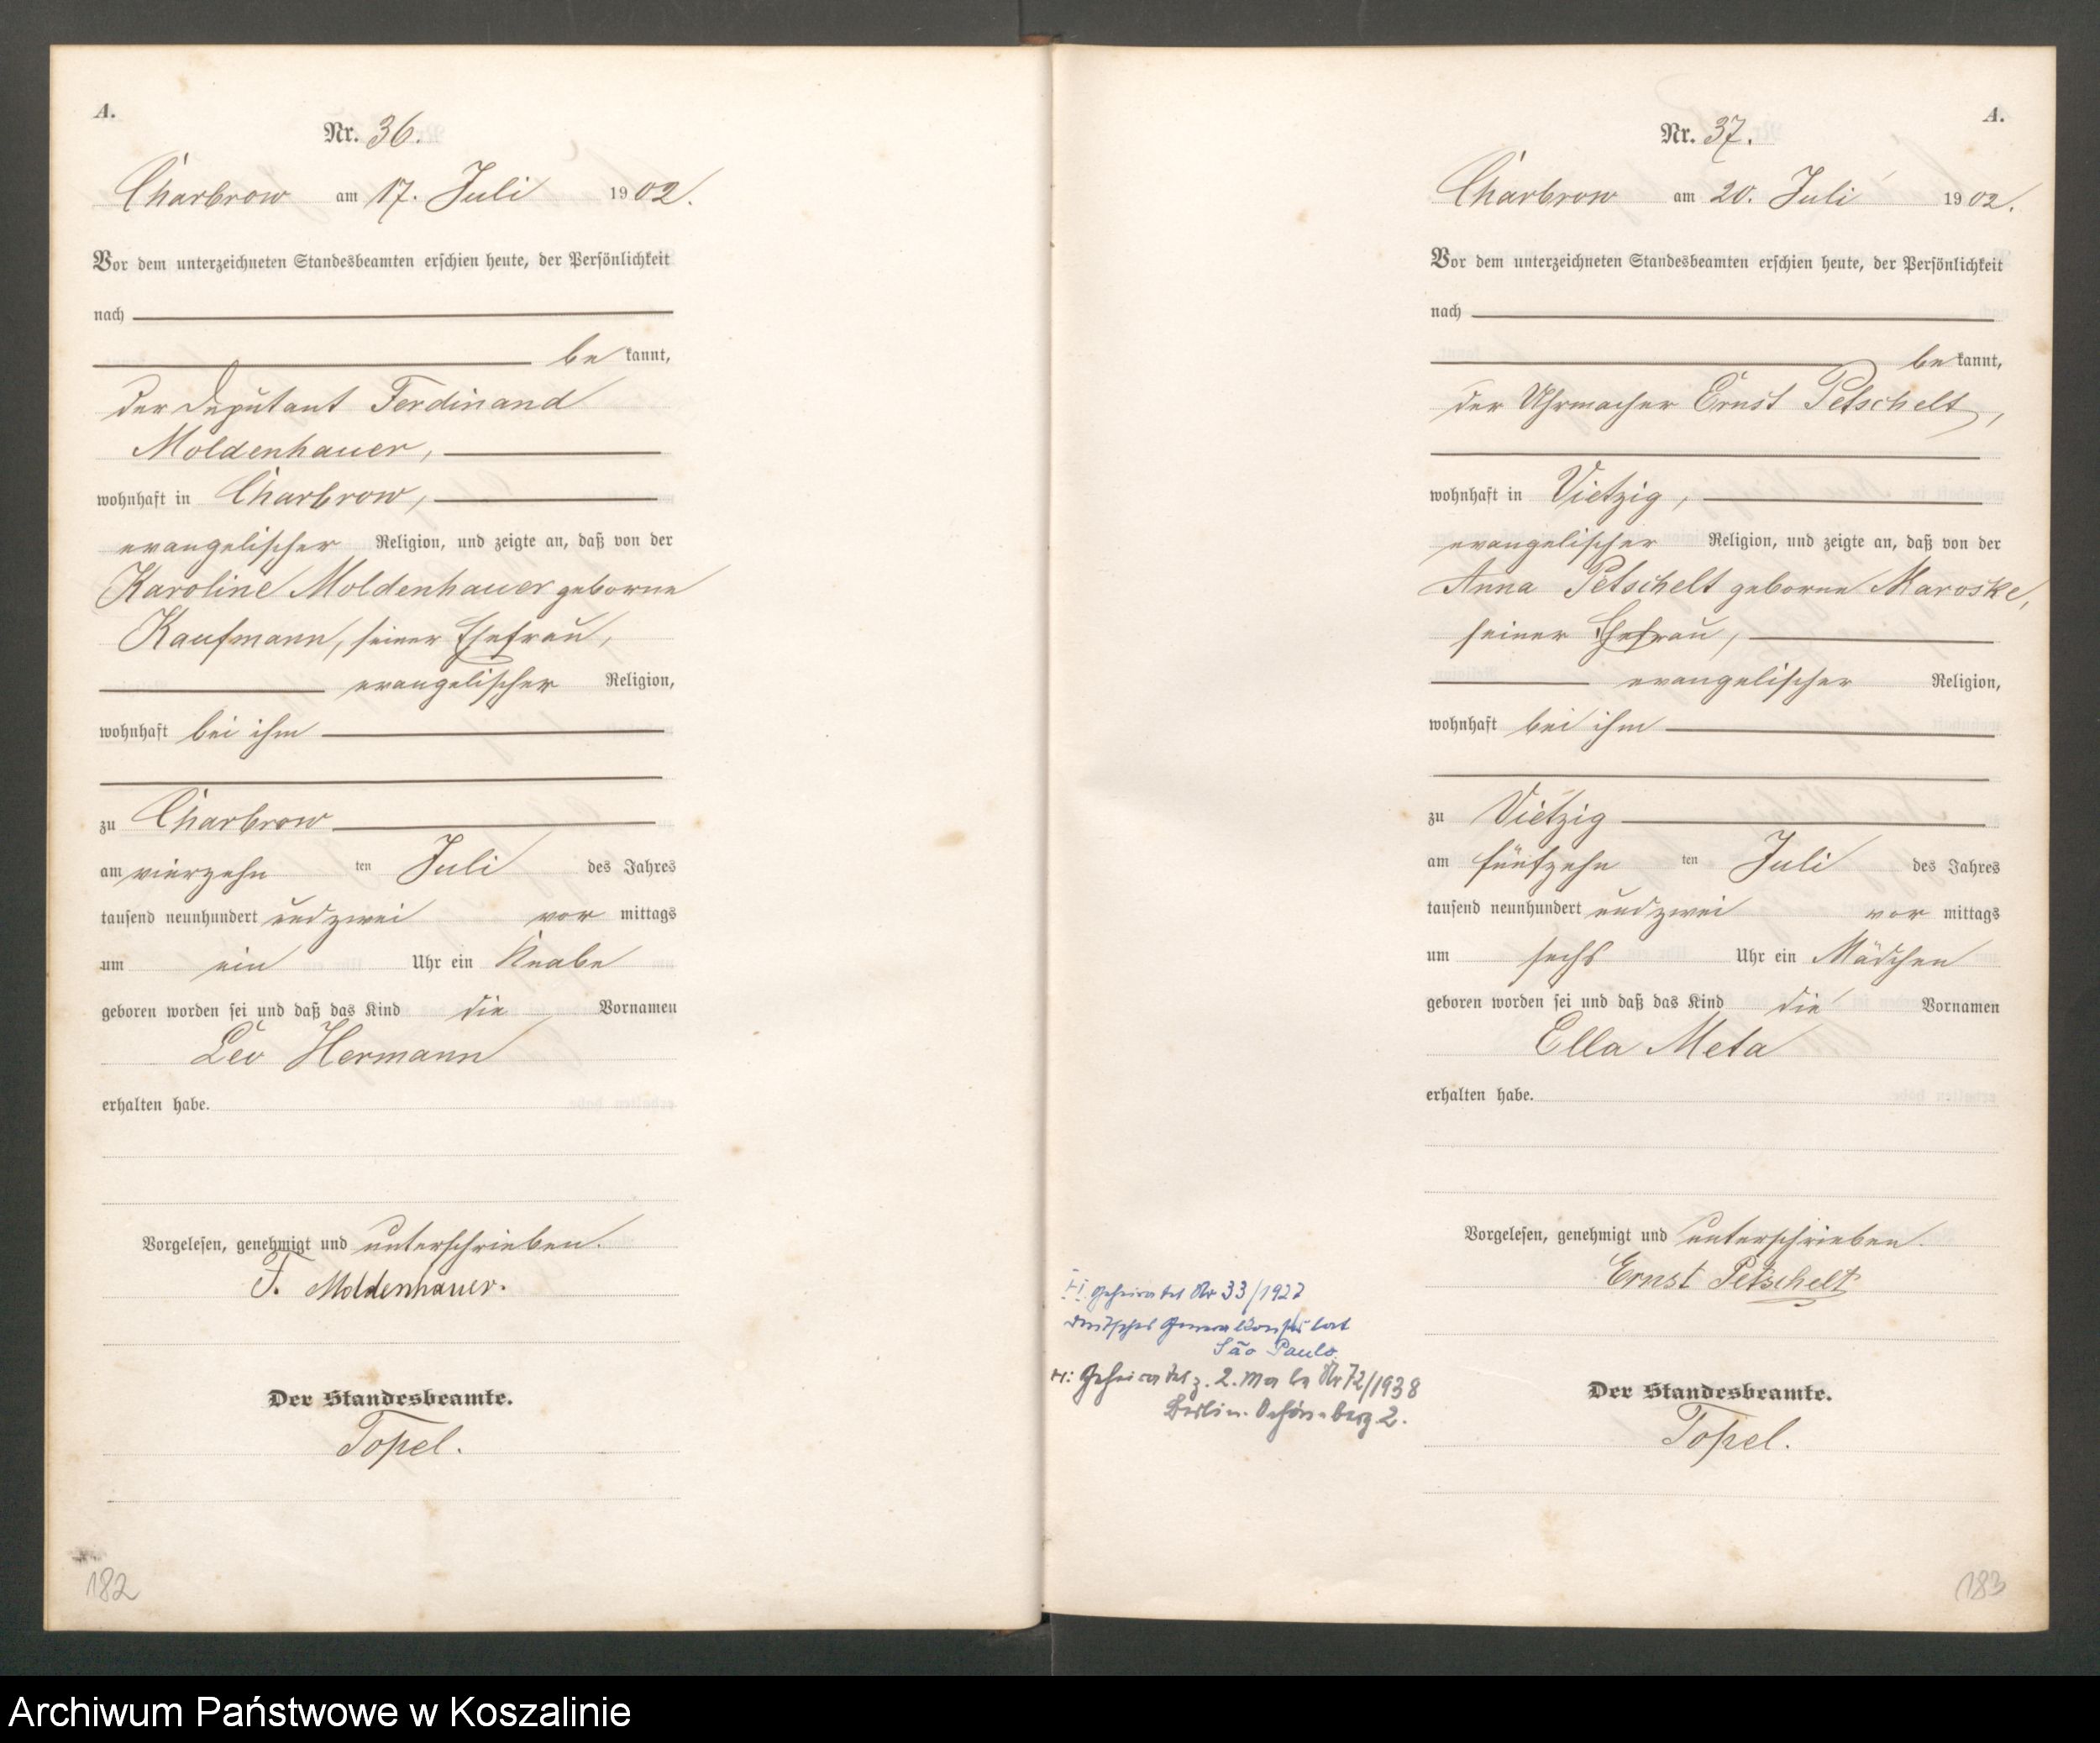 A.
Nr. 36.
Charbrow am 17. Juli 1902.
Vor dem unterzeichneten Standesbeamten erschien heute, der Persönlichkeit
nach
be kannt,
der Deputant Ferdinand
Moldenhauer,
wohnhaft in Charbrow,
evangelischer Religion, und zeigte an, daß von der
Karoline Moldenhauer geborne
Kaufmann, seiner Ehefrau,
evangelischer Religion,
wohnhaft bei ihm
zu Charbrow
am vierzehn ten Juli des Jahres
tausend neunhundert und zwei vor mittags
um ein Uhr ein Knabe
geboren worden sei und daß das Kind die Vornamen
Leo Hermann
erhalten habe.
Vorgelesen, genehmigt und unterschrieben.
F. Moldenhauer.
Der Standesbeamte.
Topel.
182
A.
Nr. 37.
Charbrow am 20. Juli 1902.
Vor dem unterzeichneten Standesbeamten erschien heute, der Persönlichkeit
nach
be kannt,
der Uhrmacher Ernst Petschelt,
wohnhaft in Vietzig,
evangelischer Religion, und zeigte an, daß von der
Anna Petschelt geborne Maroske,
seiner Ehefrau,
evangelischer Religion,
wohnhaft bei ihm
zu Vietzig
am fünfzehn ten Juli des Jahres
tausend neunhundert und zwei vor mittags
um sechs Uhr ein Mädchen
geboren worden sei und daß das Kind die Vornamen
Ella Meta
erhalten habe.
Vorgelesen, genehmigt und unterschrieben.
Ernst Petschelt
Der Standesbeamte.
Topel.
geheiratet Nr 33/1927
Deutsches Generalkonsulat
São Paulo.
H: Geheiratet z. 2. Male Nr 72/1938
Berlin-Schöneberg 2.
183
Archiwum Państwowe w Koszalinie